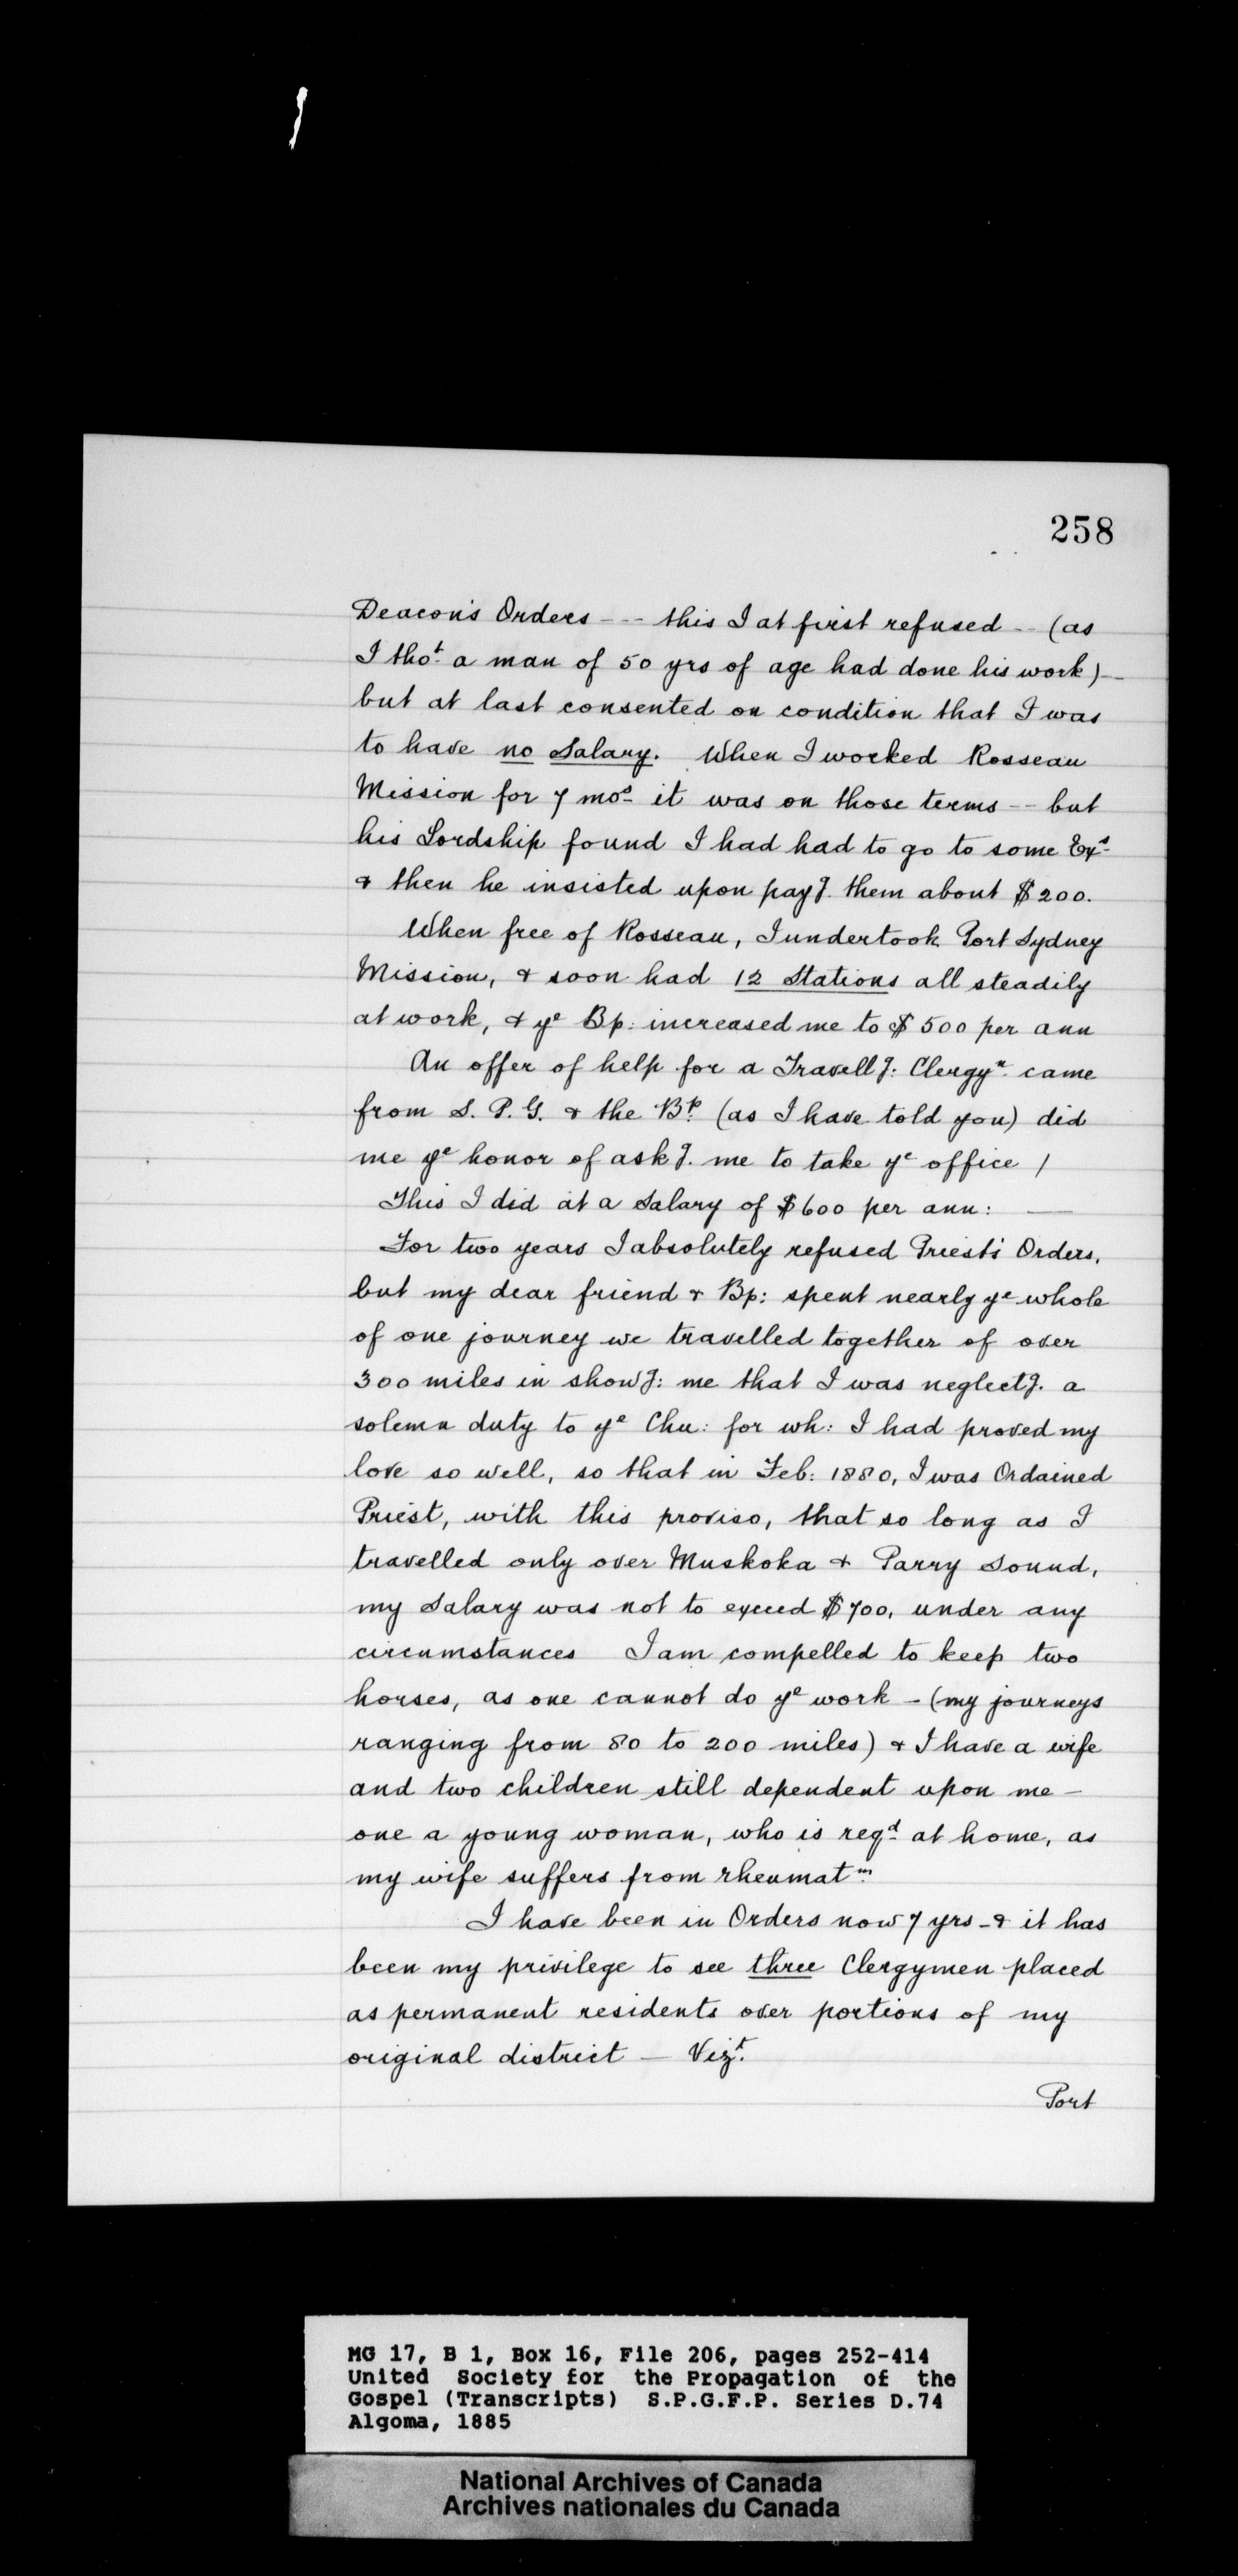 258
Deacon's Orders --- this I at first refused -- (as
I thot. a man of 50 yrs of age had done his work)--
but at last consented on condition that I was
to have no Salary. When I worked Rosseau
Mission for 7 mos. it was on those terms -- but
his Lordship found I had had to go to some Exs.
& then he insisted upon payg. them about $200.
When free of Rosseau, I undertook Port Sydney
Mission, & soon had 12 Stations all steadily
at work, & ye Bp: increased me to $500 per ann
An offer of help for a Travellg: Clergyn. came
from S. P. G. & the Bp. (as I have told you) did
me ye honor of askg. me to take ye office /
This I did at a Salary of $600 per ann: —
For two years I absolutely refused Priest's Orders,
but my dear friend & Bp: spent nearly ye whole
of one journey we travelled together of over
300 miles in showg: me that I was neglectg. a
solemn duty to ye Chu: for wh: I had proved my
love so well, so that in Feb: 1880, I was Ordained
Priest, with this proviso, that so long as I
travelled only over Muskoka & Parry Sound,
my Salary was not to exceed $700, under any
circumstances I am compelled to keep two
horses, as one cannot do ye work - (my journeys
ranging from 80 to 200 miles) & I have a wife
and two children still dependent upon me -
one a young woman, who is reqd. at home, as
my wife suffers from rheumatm.
I have been in Orders now 7 yrs - & it has
been my privilege to see three Clergymen placed
as permanent residents over portions of my
original district — Vizt.
Port
MG 17, B 1, Box 16, File 206, pages 252-414
United Society for the Propagation of the
Gospel (Transcripts) S.P.G.F.P. Series D.74
Algoma, 1885
National Archives of Canada
Archives nationales du Canada